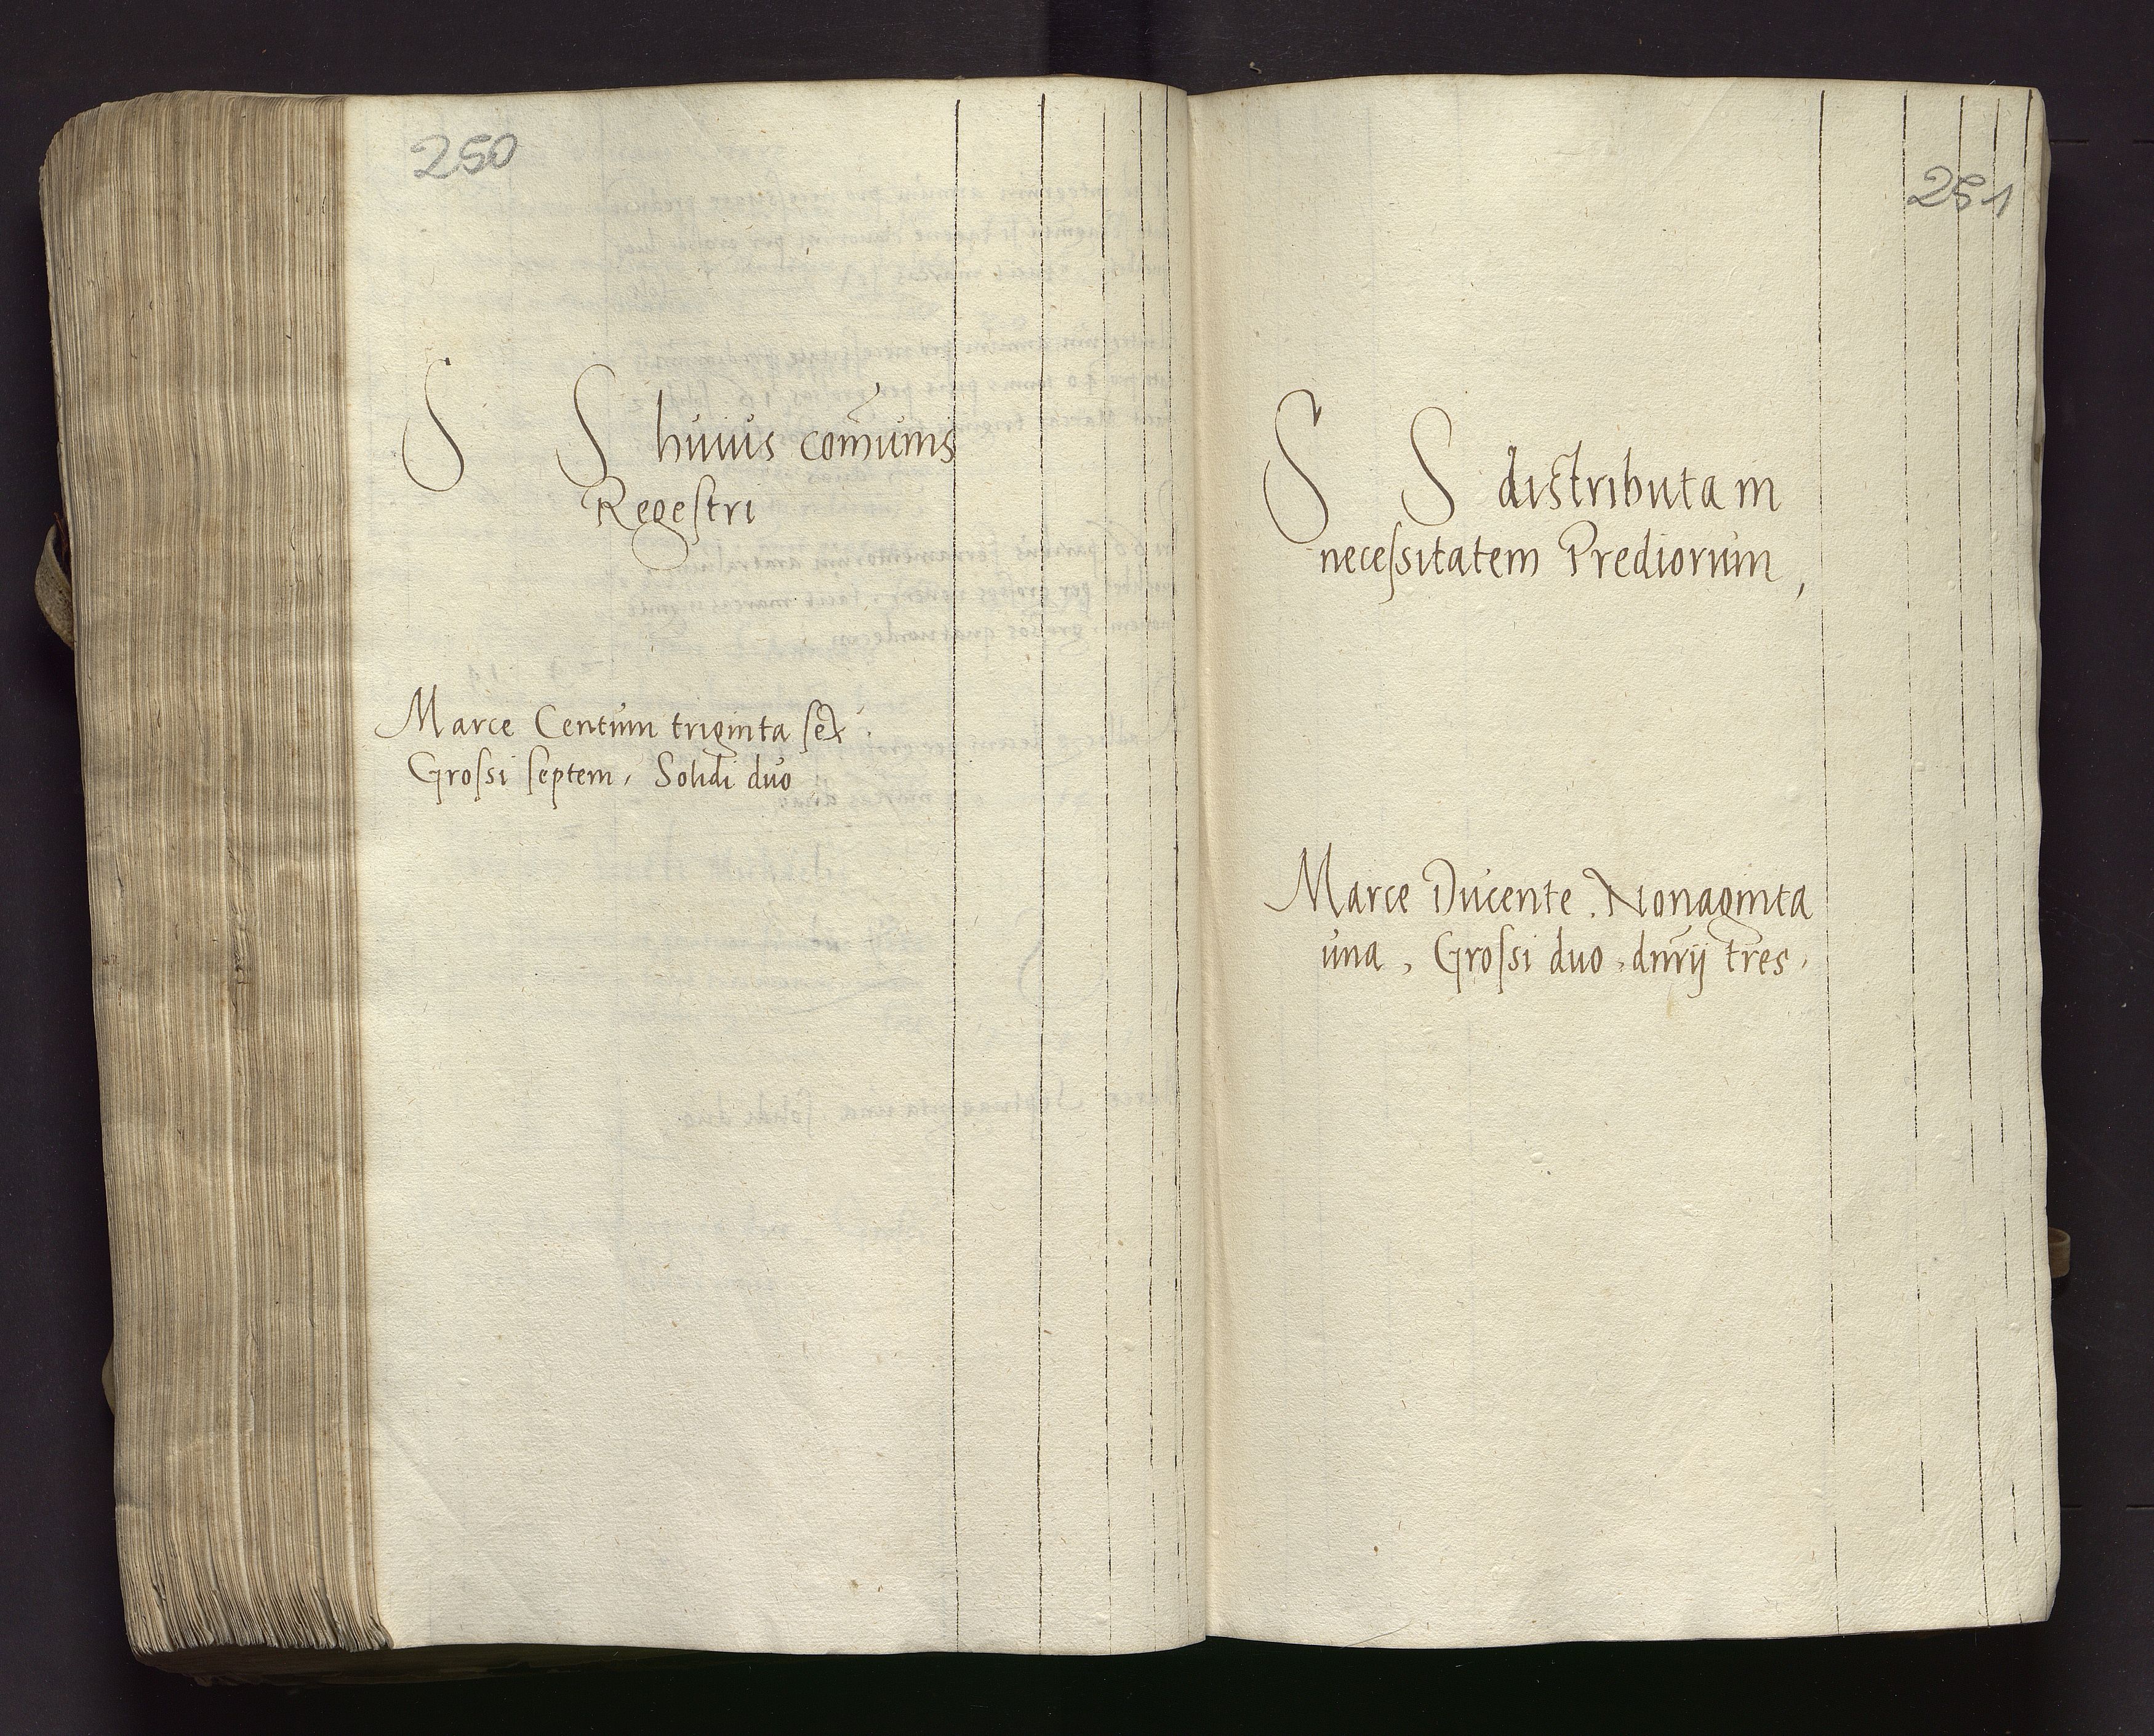 250
S S huius com̃unis
Regeſtri
Marce Centum triginta ſex.
Groſſi ſeptem, Solidi duo
251
S S distributa in
neceſsitatem Prediorum,
Marce Ducente. Nonaginta
una, Groſsi duo, dnrij tres,